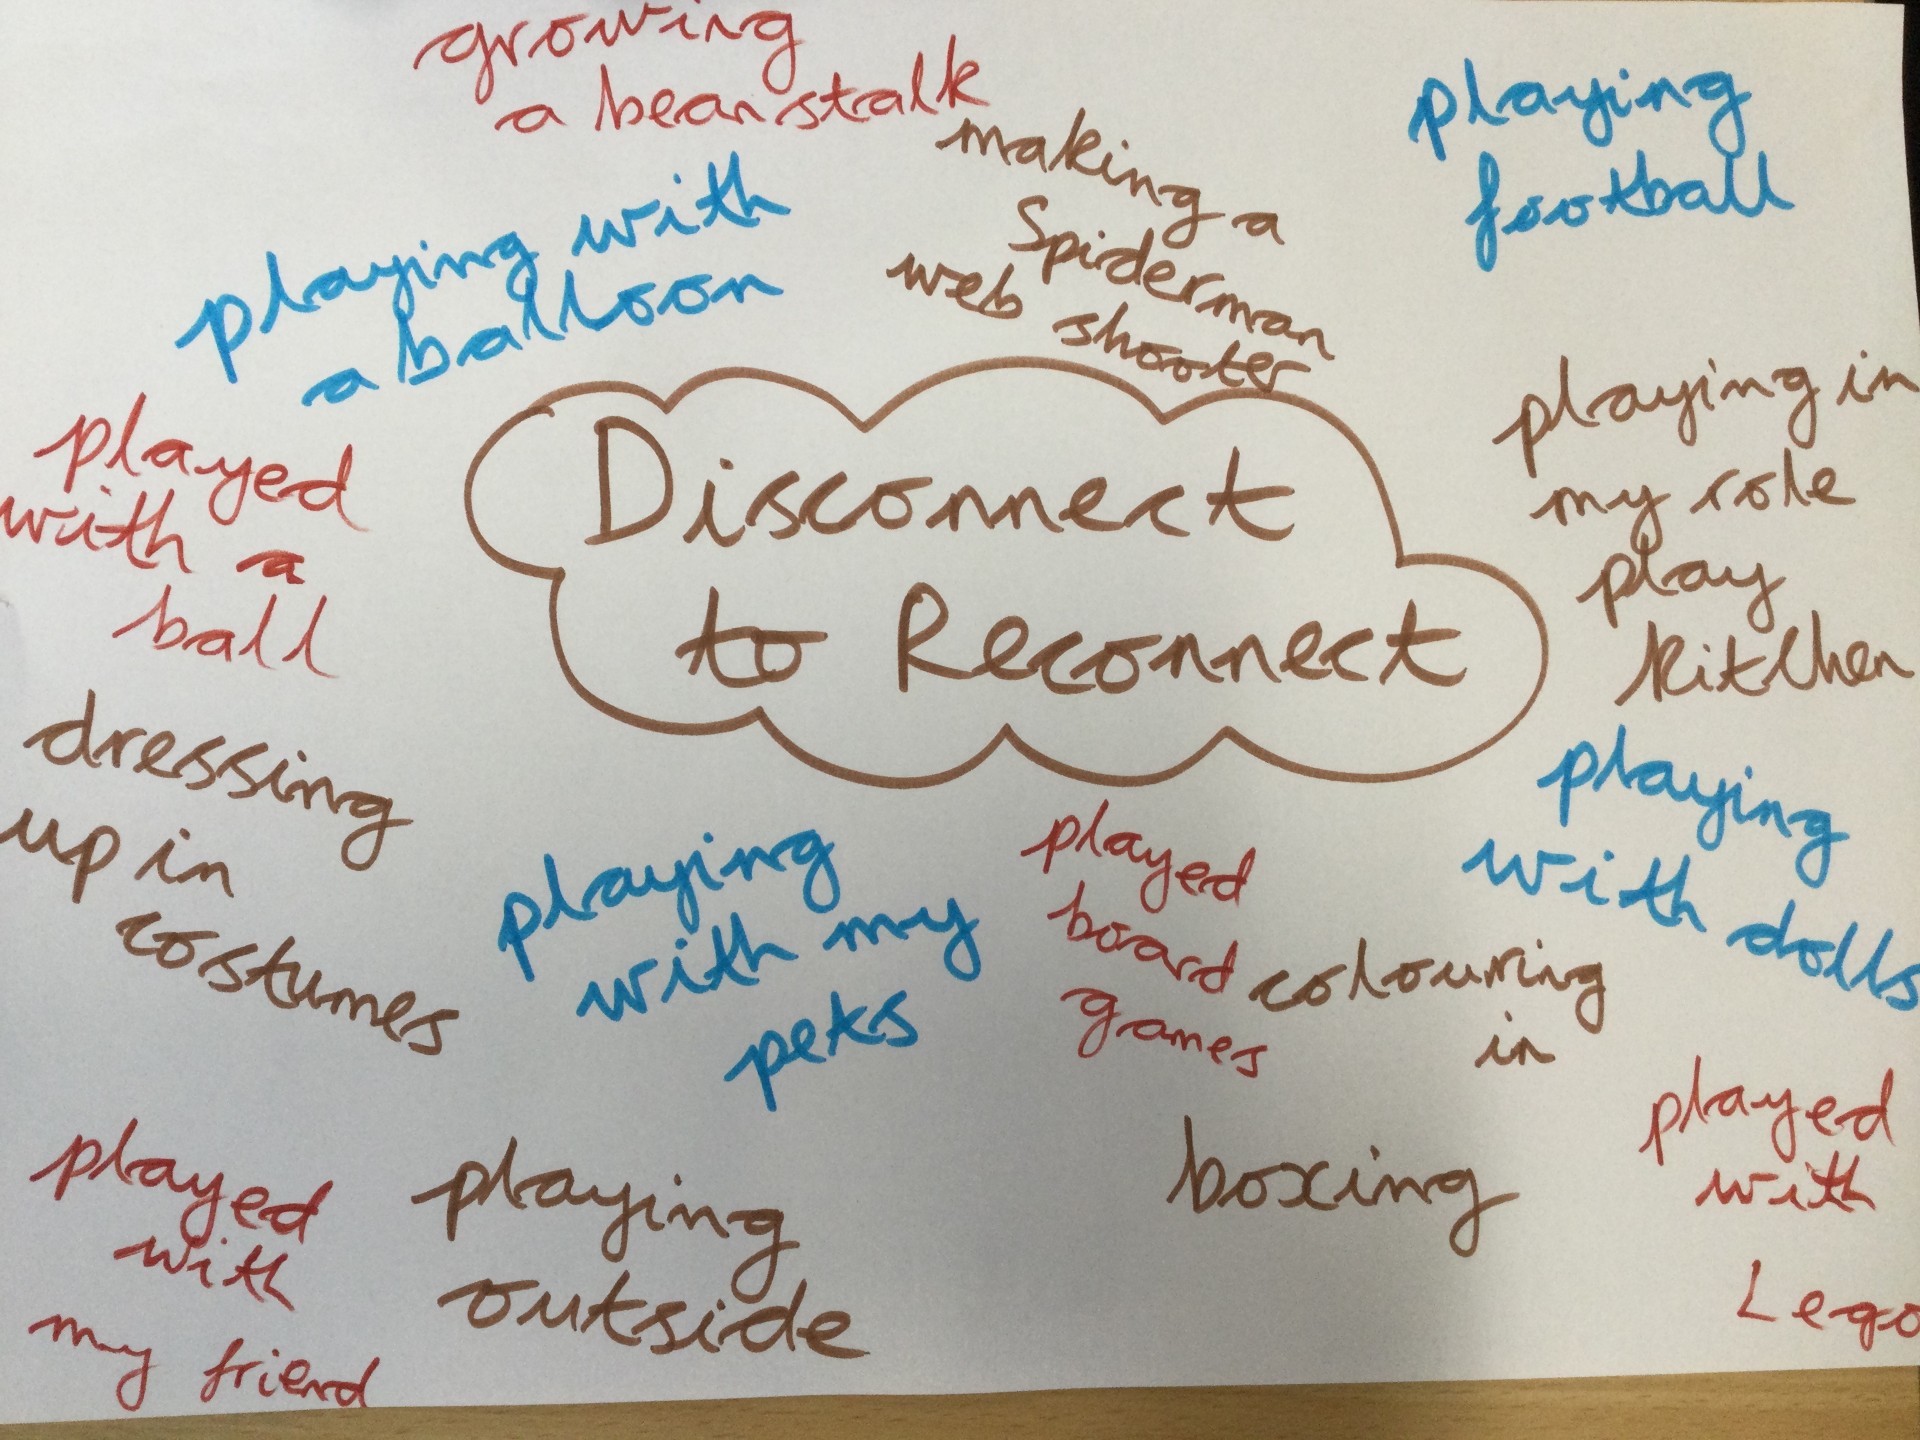 growing
a beanstalk
making a
Spiderman
web shooter
playing
football
playing with
a balloon
Disconnect
to Reconnect
playing in
my role
play
kitchen
played
with a
ball
dressing
up in
costumes
playing
with my
pets
played
board
games
colouring
in
playing
with dolls
played
with
my friend
playing
outside
boxing
played
with
Lego